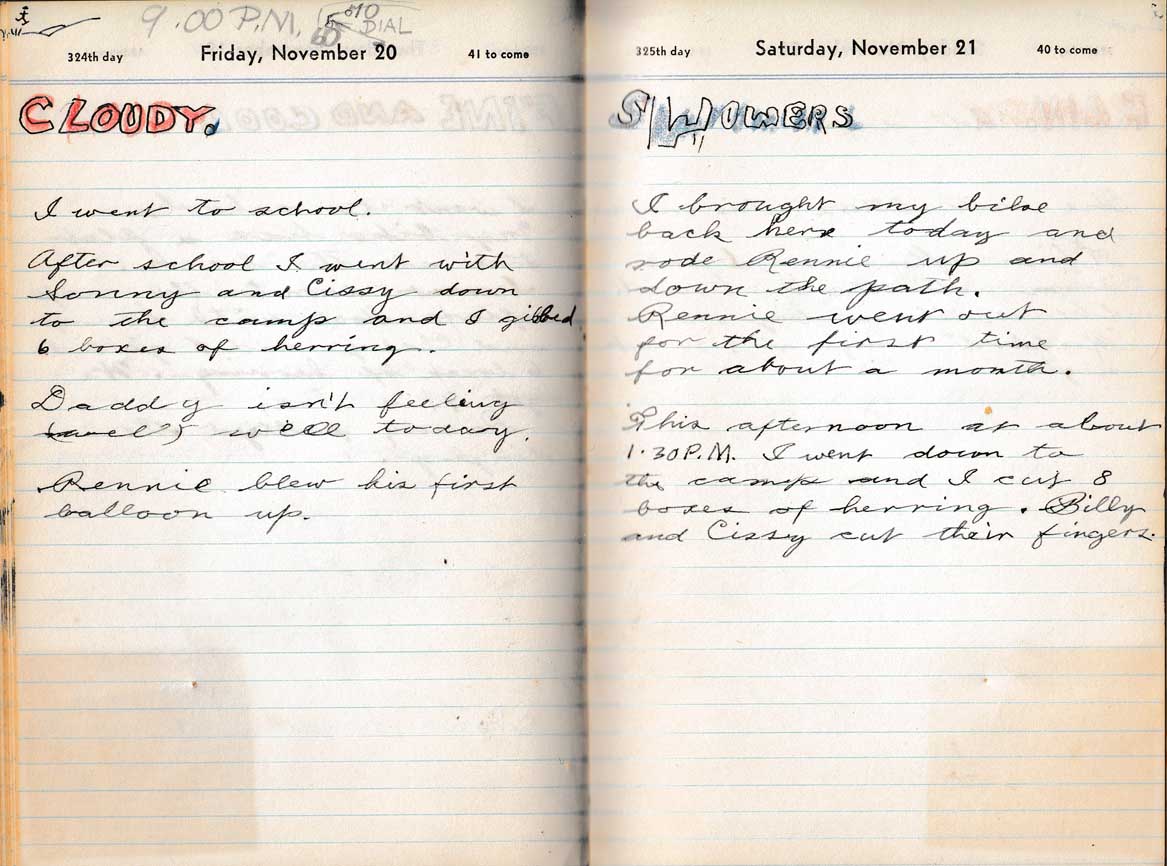 9.00 P.M.
510
DIAL
60
324th day Friday, November 20 41 to come
CLOUDY.
I went to school.
After school I went with
Sonny and Cissy down
to the camp and I gibbed
6 boxes of herring.
Daddy isn't feeling
well today.
Rennie blew his first
balloon up.
325th day Saturday, November 21 40 to come
SHOWERS
I brought my bike
back here today and
rode Rennie up and
down the path.
Rennie went out
for the first time
for about a month.
This afternoon at about
1.30 P.M. I went down to
the camp and I cut 8
boxes of herring. Billy
and Cissy cut their fingers.